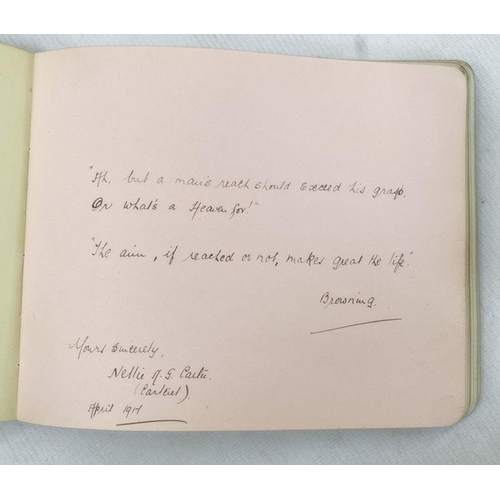 "Ah, but a man's reach should exceed his grasp.
Or what's a Heaven for!"
"The aim, if reached or not, makes great the life".
Browning.
Yours Sincerely,
Nellie G. Carter
(Carteret).
April